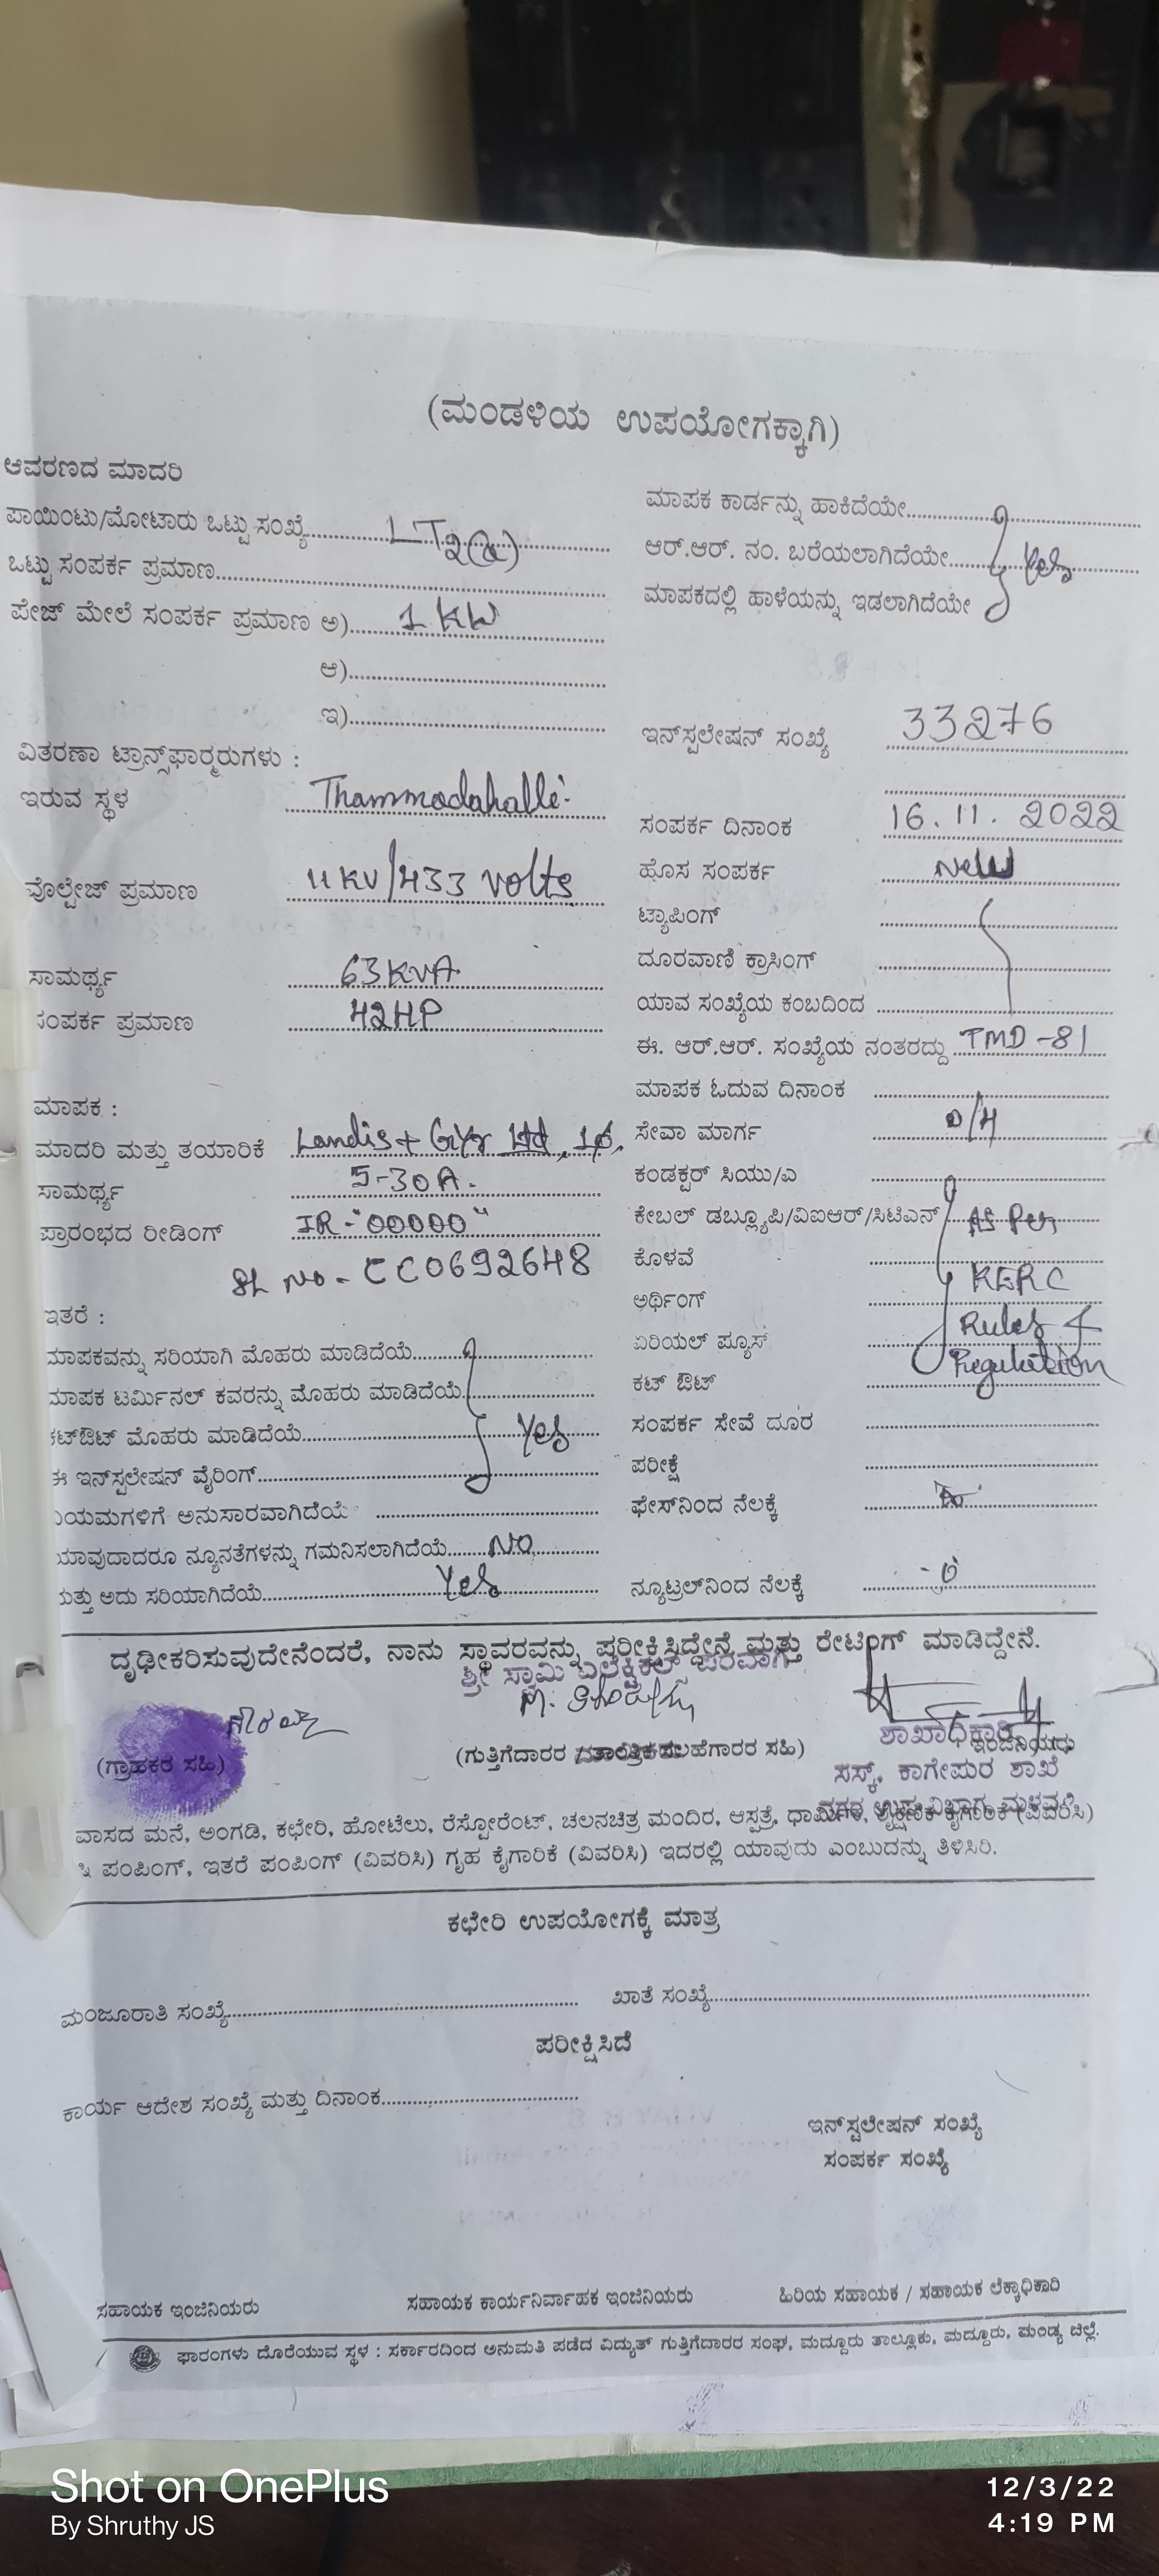 (ಮಂಡಳಿಯ ಉಪಯೋಗಕ್ಕಾಗಿ)
ಆವರಣದ ಮಾದರಿ
ಪಾಯಿಂಟು/ಮೋಟಾರು ಒಟ್ಟು ಸಂಖ್ಯೆ LT2(a)
ಒಟ್ಟು ಸಂಪರ್ಕ ಪ್ರಮಾಣ
ಪೇಜ್ ಮೇಲೆ ಸಂಪರ್ಕ ಪ್ರಮಾಣ ಅ) 1 KW
ಆ)
ಇ)
ವಿತರಣಾ ಟ್ರಾನ್ಸ್‌ಫಾರ್‍ಮರುಗಳು :
ಇರುವ ಸ್ಥಳ Thammadahalli
ವೊಲ್ಟೇಜ್ ಪ್ರಮಾಣ 11 KV/433 volts
ಸಾಮರ್ಥ್ಯ 63 KVA
ಸಂಪರ್ಕ ಪ್ರಮಾಣ 42HP
ಮಾಪಕ :
ಮಾದರಿ ಮತ್ತು ತಯಾರಿಕೆ Landis + Gyr Ltd, 1ϕ,
ಸಾಮರ್ಥ್ಯ 5-30A.
ಪ್ರಾರಂಭದ ರೀಡಿಂಗ್ IR-"00000"
SL NO - CC0692648
ಇತರೆ :
ಮಾಪಕವನ್ನು ಸರಿಯಾಗಿ ಮೊಹರು ಮಾಡಿದೆಯೆ
ಮಾಪಕ ಟರ್ಮಿನಲ್ ಕವರನ್ನು ಮೊಹರು ಮಾಡಿದೆಯೆ
ಕಟ್‌ಔಟ್ ಮೊಹರು ಮಾಡಿದೆಯೆ Yes
ಈ ಇನ್‌ಸ್ಟಲೇಷನ್ ವೈರಿಂಗ್
ನಿಯಮಗಳಿಗೆ ಅನುಸಾರವಾಗಿದೆಯೆ
ಯಾವುದಾದರೂ ನ್ಯೂನತೆಗಳನ್ನು ಗಮನಿಸಲಾಗಿದೆಯೆ NO
ಮತ್ತು ಅದು ಸರಿಯಾಗಿದೆಯೆ Yes
ಮಾಪಕ ಕಾರ್ಡನ್ನು ಹಾಕಿದೆಯೇ
ಆರ್.ಆರ್. ನಂ. ಬರೆಯಲಾಗಿದೆಯೇ Yes
ಮಾಪಕದಲ್ಲಿ ಹಾಳೆಯನ್ನು ಇಡಲಾಗಿದೆಯೇ
ಇನ್‌ಸ್ಟಲೇಷನ್ ಸಂಖ್ಯೆ 33276
ಸಂಪರ್ಕ ದಿನಾಂಕ 16.11.2022
ಹೊಸ ಸಂಪರ್ಕ New
ಟ್ಯಾಪಿಂಗ್
ದೂರವಾಣಿ ಕ್ರಾಸಿಂಗ್
ಯಾವ ಸಂಖ್ಯೆಯ ಕಂಬದಿಂದ
ಈ. ಆರ್.ಆರ್. ಸಂಖ್ಯೆಯ ನಂತರದ್ದು TMD-81
ಮಾಪಕ ಓದುವ ದಿನಾಂಕ
ಸೇವಾ ಮಾರ್ಗ O/H
ಕಂಡಕ್ಟರ್ ಸಿಯು/ಎ
ಕೇಬಲ್ ಡಬ್ಲ್ಯೂಪಿ/ವಿಐಆರ್/ಸಿಟಿಎನ್ As Per
ಕೊಳವೆ KERC
ಅರ್ಥಿಂಗ್ Rules &
ಏರಿಯಲ್ ಫ್ಯೂಸ್ Regulation
ಕಟ್ ಔಟ್
ಸಂಪರ್ಕ ಸೇವೆ ದೂರ
ಪರೀಕ್ಷೆ
ಫೇಸ್‌ನಿಂದ ನೆಲಕ್ಕೆ
ನ್ಯೂಟ್ರಲ್‌ನಿಂದ ನೆಲಕ್ಕೆ
ದೃಢೀಕರಿಸುವುದೇನೆಂದರೆ, ನಾನು ಸ್ಥಾವರವನ್ನು ಪರೀಕ್ಷಿಸಿದ್ದೇನೆ ಮತ್ತು ರೇಟಿಂಗ್ ಮಾಡಿದ್ದೇನೆ.
ಶ್ರೀ ಸ್ವಾಮಿ ಎಲೆಕ್ಟ್ರಿಕಲ್ಸ್ ಪರವಾಗಿ
(ಗ್ರಾಹಕರ ಸಹಿ)
(ಗುತ್ತಿಗೆದಾರರ / ತಾಂತ್ರಿಕ ಸಲಹೆಗಾರರ ಸಹಿ)
ಶಾಖಾಧಿಕಾರಿ
ಇಂಜಿನಿಯರು
ಸಸ್ಕ್, ಕಾಗೇಪುರ ಶಾಖೆ
ವಾಸದ ಮನೆ, ಅಂಗಡಿ, ಕಛೇರಿ, ಹೋಟೆಲು, ರೆಸ್ಟೋರೆಂಟ್, ಚಲನಚಿತ್ರ ಮಂದಿರ, ಆಸ್ಪತ್ರೆ, ಧಾರ್ಮಿಕ, ಶೈಕ್ಷಣಿಕ ಕೈಗಾರಿಕೆ (ವಿವರಿಸಿ)
ಪಂಪಿಂಗ್, ಇತರೆ ಪಂಪಿಂಗ್ (ವಿವರಿಸಿ) ಗೃಹ ಕೈಗಾರಿಕೆ (ವಿವರಿಸಿ) ಇದರಲ್ಲಿ ಯಾವುದು ಎಂಬುದನ್ನು ತಿಳಿಸಿರಿ.
ಕಛೇರಿ ಉಪಯೋಗಕ್ಕೆ ಮಾತ್ರ
ಮಂಜೂರಾತಿ ಸಂಖ್ಯೆ ಖಾತೆ ಸಂಖ್ಯೆ
ಪರೀಕ್ಷಿಸಿದೆ
ಕಾರ್ಯ ಆದೇಶ ಸಂಖ್ಯೆ ಮತ್ತು ದಿನಾಂಕ
ಇನ್‌ಸ್ಟಲೇಷನ್ ಸಂಖ್ಯೆ
ಸಂಪರ್ಕ ಸಂಖ್ಯೆ
ಸಹಾಯಕ ಇಂಜಿನಿಯರು ಸಹಾಯಕ ಕಾರ್ಯನಿರ್ವಾಹಕ ಇಂಜಿನಿಯರು ಹಿರಿಯ ಸಹಾಯಕ / ಸಹಾಯಕ ಲೆಕ್ಕಾಧಿಕಾರಿ
ಫಾರಂಗಳು ದೊರೆಯುವ ಸ್ಥಳ : ಸರ್ಕಾರದಿಂದ ಅನುಮತಿ ಪಡೆದ ವಿದ್ಯುತ್ ಗುತ್ತಿಗೆದಾರರ ಸಂಘ, ಮದ್ದೂರು ತಾಲ್ಲೂಕು, ಮದ್ದೂರು, ಮಂಡ್ಯ ಜಿಲ್ಲೆ.
Shot on OnePlus
By Shruthy JS
12/3/22
4:19 PM